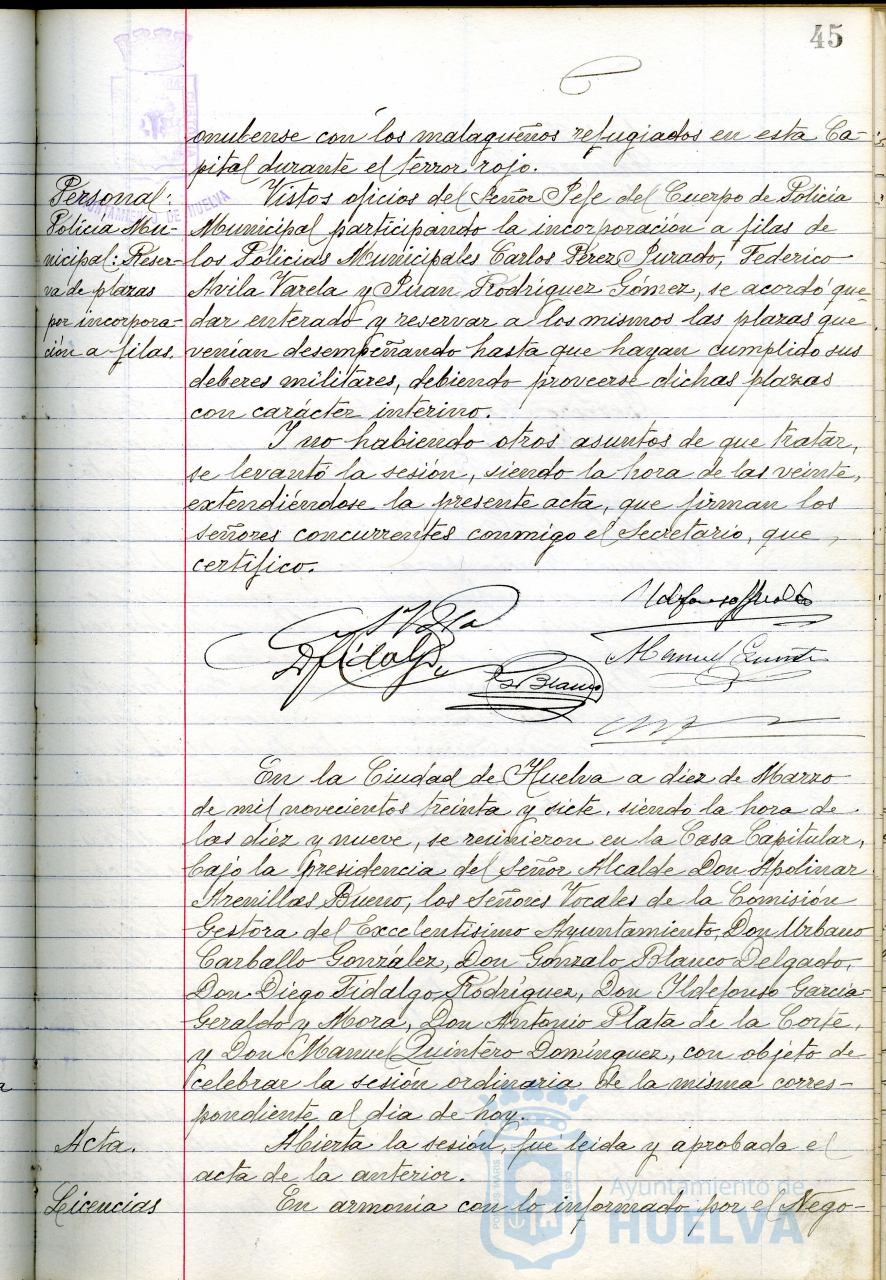 45
onubense con los malagueños refugiados en esta Ca-
pital durante el terror rojo.
Personal:
Policía Mu-
nicipal: Reser-
va de plazas
por incorpora-
ción a filas.
Vistos oficios del Señor Jefe del Cuerpo de Policía
Municipal participando la incorporación a filas de
los Policías Municipales Carlos Pérez Jurado, Federico
Avila Varela y Juan Rodríguez Gómez, se acordó que-
dar enterado y reservar a los mismos las plazas que
venían desempeñando hasta que hayan cumplido sus
deberes militares, debiendo proveerse dichas plazas
con carácter interino.
Y no habiendo otros asuntos de que tratar,
se levantó la sesión, siendo la hora de las veinte,
extendiéndose la presente acta, que firman los
señores concurrentes conmigo el Secretario, que
certifico.
D Fidalgo
G Blanco
Manuel Quintero
En la Ciudad de Huelva a diez de Marzo
de mil novecientos treinta y siete, siendo la hora de
las diez y nueve, se reunieron en la Casa Capitular,
bajo la presidencia del Señor Alcalde Don Apolinar
Arenillas Bueno, los Señores Vocales de la Comisión
Gestora del Excelentísimo Ayuntamiento, Don Urbano
Carballo González, Don Gonzalo Blanco Delgado,
Don Diego Fidalgo Rodríguez, Don Ildefonso García-
Geraldo y Mora, Don Antonio Plata de la Corte,
y Don Manuel Quintero Domínguez, con objeto de
celebrar la sesión ordinaria de la misma corres-
pondiente al día de hoy.
Acta.
Abierta la sesión, fué leida y aprobada el
acta de la anterior.
Licencias
En armonía con lo informado por el Nego-
AYUNTAMIENTO DE HUELVA
Ayuntamiento de
HUELVA